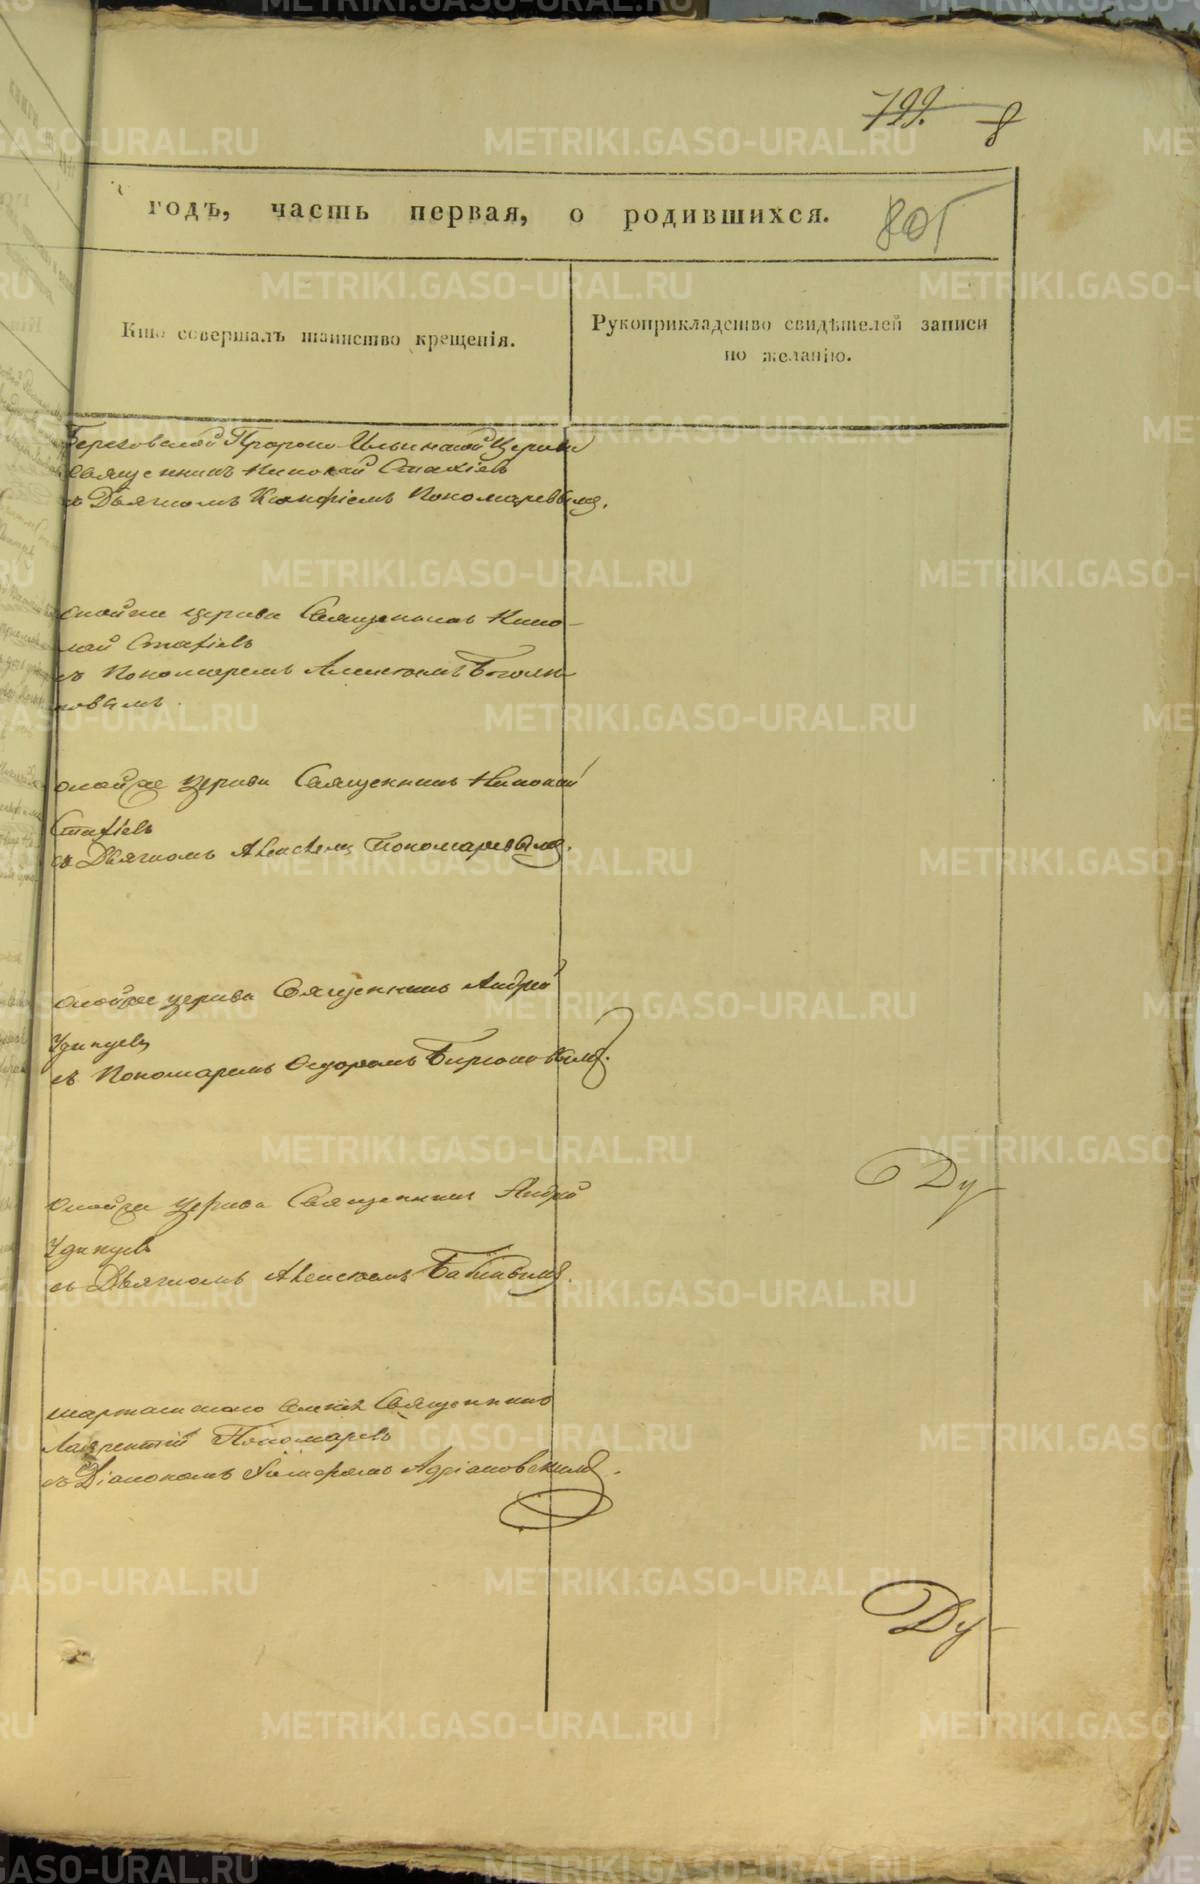 799. 8
годъ, часть первая, о родившихся. 801
Кто совершалъ таинство крещенія.
Рукоприкладство свидѣтелей записи
по желанію.
Березовской Пророко-Ильинской Церкви
Священникъ Николай Стахіевъ
съ Дьячкомъ Пономаревымъ.
церкви Священникъ Нико-
лай Стахіевъ
съ Пономаремъ Алексѣемъ
церкви Священникъ Николай
Стахіевъ
съ Дьячкомъ Алексѣемъ Пономаревымъ.
церкви Священникъ Андрей
Удинцевъ
съ Пономаремъ Бирюковымъ.
церкви Священникъ Андрей
Удинцевъ
съ Дьячкомъ Алексѣемъ
Священникъ
Лаврентій Пономаревъ
съ Діакономъ Адріановскимъ.
METRIKI.GASO-URAL.RU